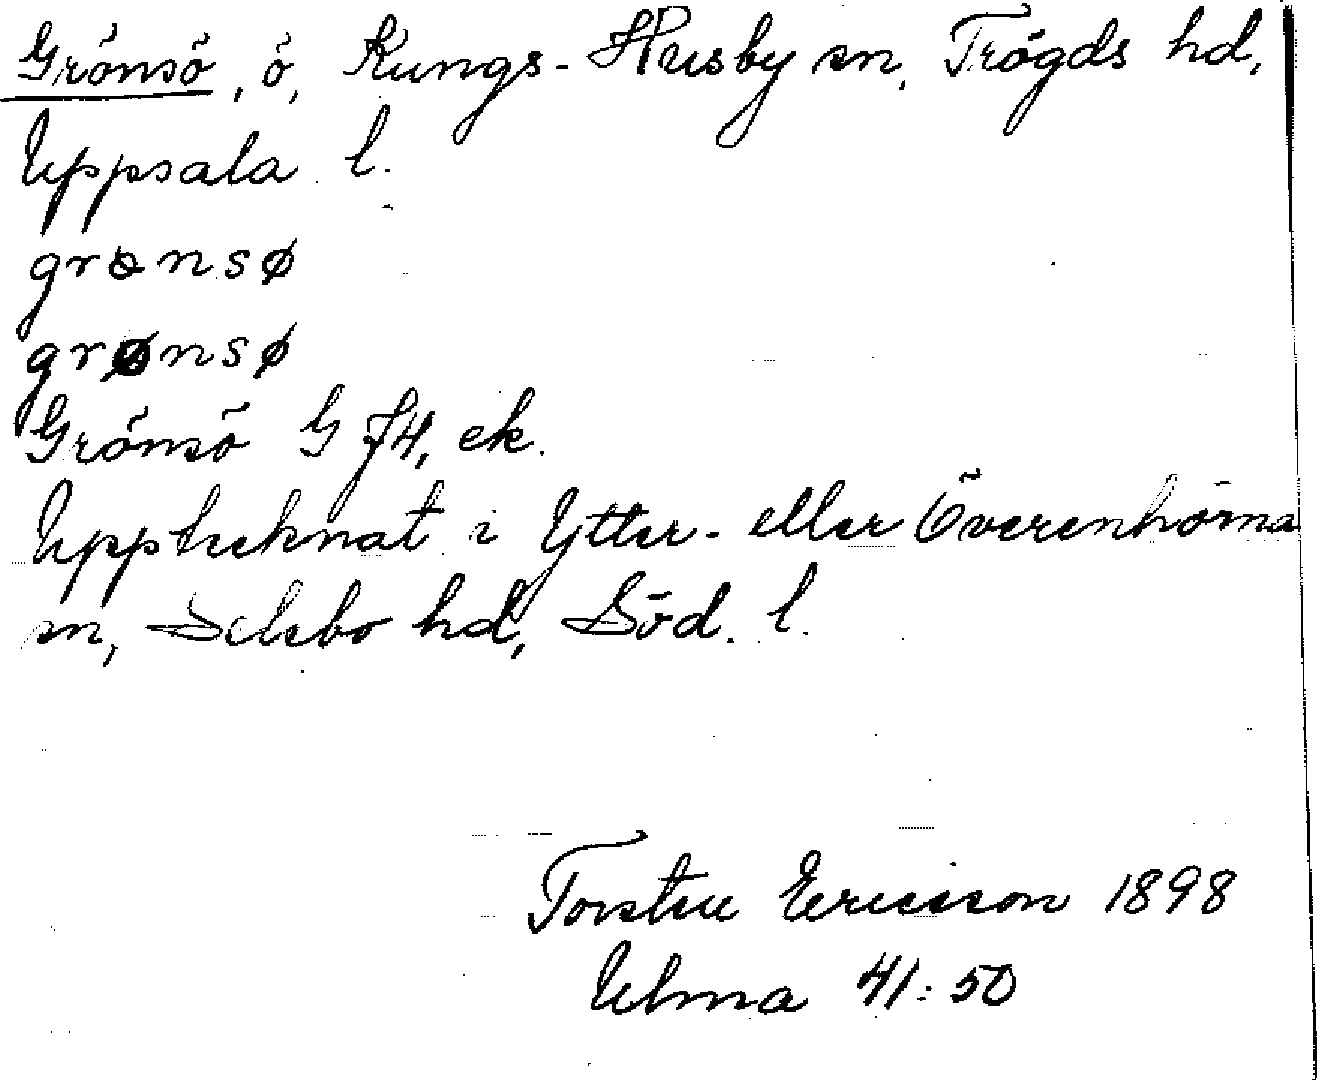 Grönsö, ö, Kungs-Husby sn, Trögds hd,
Uppsala l.
grɵnsø
grønsø
Grönsö G J4, ek.
Upptecknat i Ytter- eller Överenhörna
sn, Selebo hd, Söd. l.
Torsten Ericsson 1898
Ulma 41:50